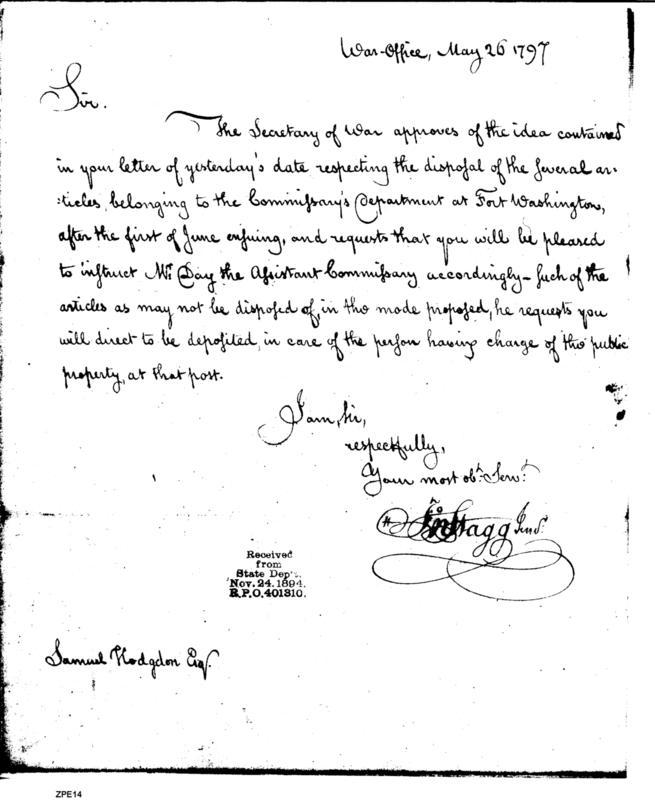 War-Office, May 26 1797
Sir.
The Secretary of War approves of the idea contained
in your letter of yesterday's date respecting the disposal of the several ar=
=ticles belonging to the Commissary's Department at Fort Washington,
after the first of June ensuing, and requests that you will be pleased
to instruct Mr. Day the Assistant Commissary accordingly – Such of the
articles as may not be disposed of, in the mode proposed, he requests you
will direct to be deposited, in care of the person having charge of the public
property, at that post.
I am, Sir,
respectfully,
Your most obt. Servt.
Jno Stagg Junr.
Received
from
State Dept.
Nov. 24. 1894.
R.P.O. 401310.
Samuel Hodgdon Esqr.
ZPE14